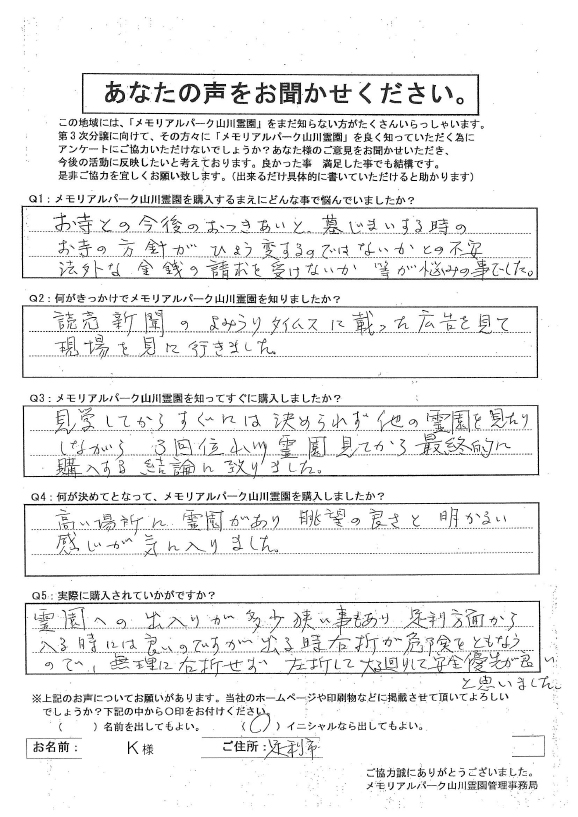 あなたの声をお聞かせください。
この地域には、「メモリアルパーク山川霊園」をまだ知らない方がたくさんいらっしゃいます。
第３次分譲に向けて、その方々に「メモリアルパーク山川霊園」を良く知っていただく為に
アンケートにご協力いただけないでしょうか？あなた様のご意見をお聞かせいただき、
今後の活動に反映したいと考えております。良かった事　満足した事でも結構です。
是非ご協力を宜しくお願い致します。（出来るだけ具体的に書いていただけると助かります）
Q1：メモリアルパーク山川霊園を購入するまえにどんな事で悩んでいましたか？
お寺との今後のおつきあいと、墓じまいする時の
お寺の方針がひょう変するのではないかとの不安
法外な金銭の請求を受けないか 等が悩みの事でした。
Q2：何がきっかけでメモリアルパーク山川霊園を知りましたか？
読売新聞のよみうりタイムスに載った広告を見て
現場を見に行きました。
Q3：メモリアルパーク山川霊園を知ってすぐに購入しましたか？
見学してからすぐには決められず他の霊園を見たり
しながら ３回位山川霊園見てから最終的に
購入する結論に致りました。
Q4：何が決めてとなって、メモリアルパーク山川霊園を購入しましたか？
高い場所に霊園があり 眺望の良さと 明かるい
感じが気に入りました。
Q5：実際に購入されていかがですか？
霊園への出入りが多少狭い事もあり 足利方面から
入る時には良いのですが出る時右折が危険をともなう
ので、無理に右折せず 左折して大回りして安全優先が良い
と思いました。
※上記のお声についてお願いがあります。当社のホームページや印刷物などに掲載させて頂いてよろしい
でしょうか？下記の中から○印をお付けください。
（　　）名前を出してもよい。　（○）イニシャルなら出してもよい。
お名前：　K様　ご住所：足利市
ご協力誠にありがとうございました。
メモリアルパーク山川霊園管理事務局